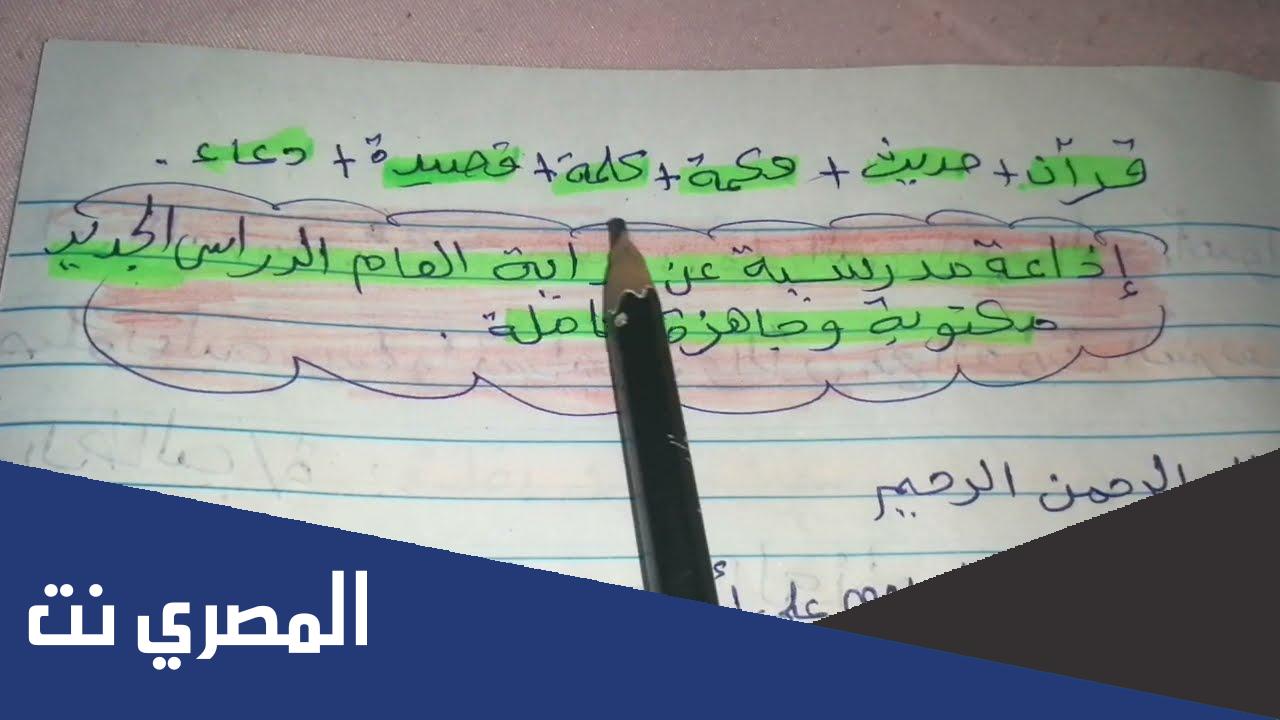 قرآن + حديث + حكمة + كلمة + قصيدة + دعاء .
إذاعة مدرسية عن العام الدراسي الجديد
مكتوبة وجاهزة كاملة .
الرحمن الرحيم
على
المصري نت